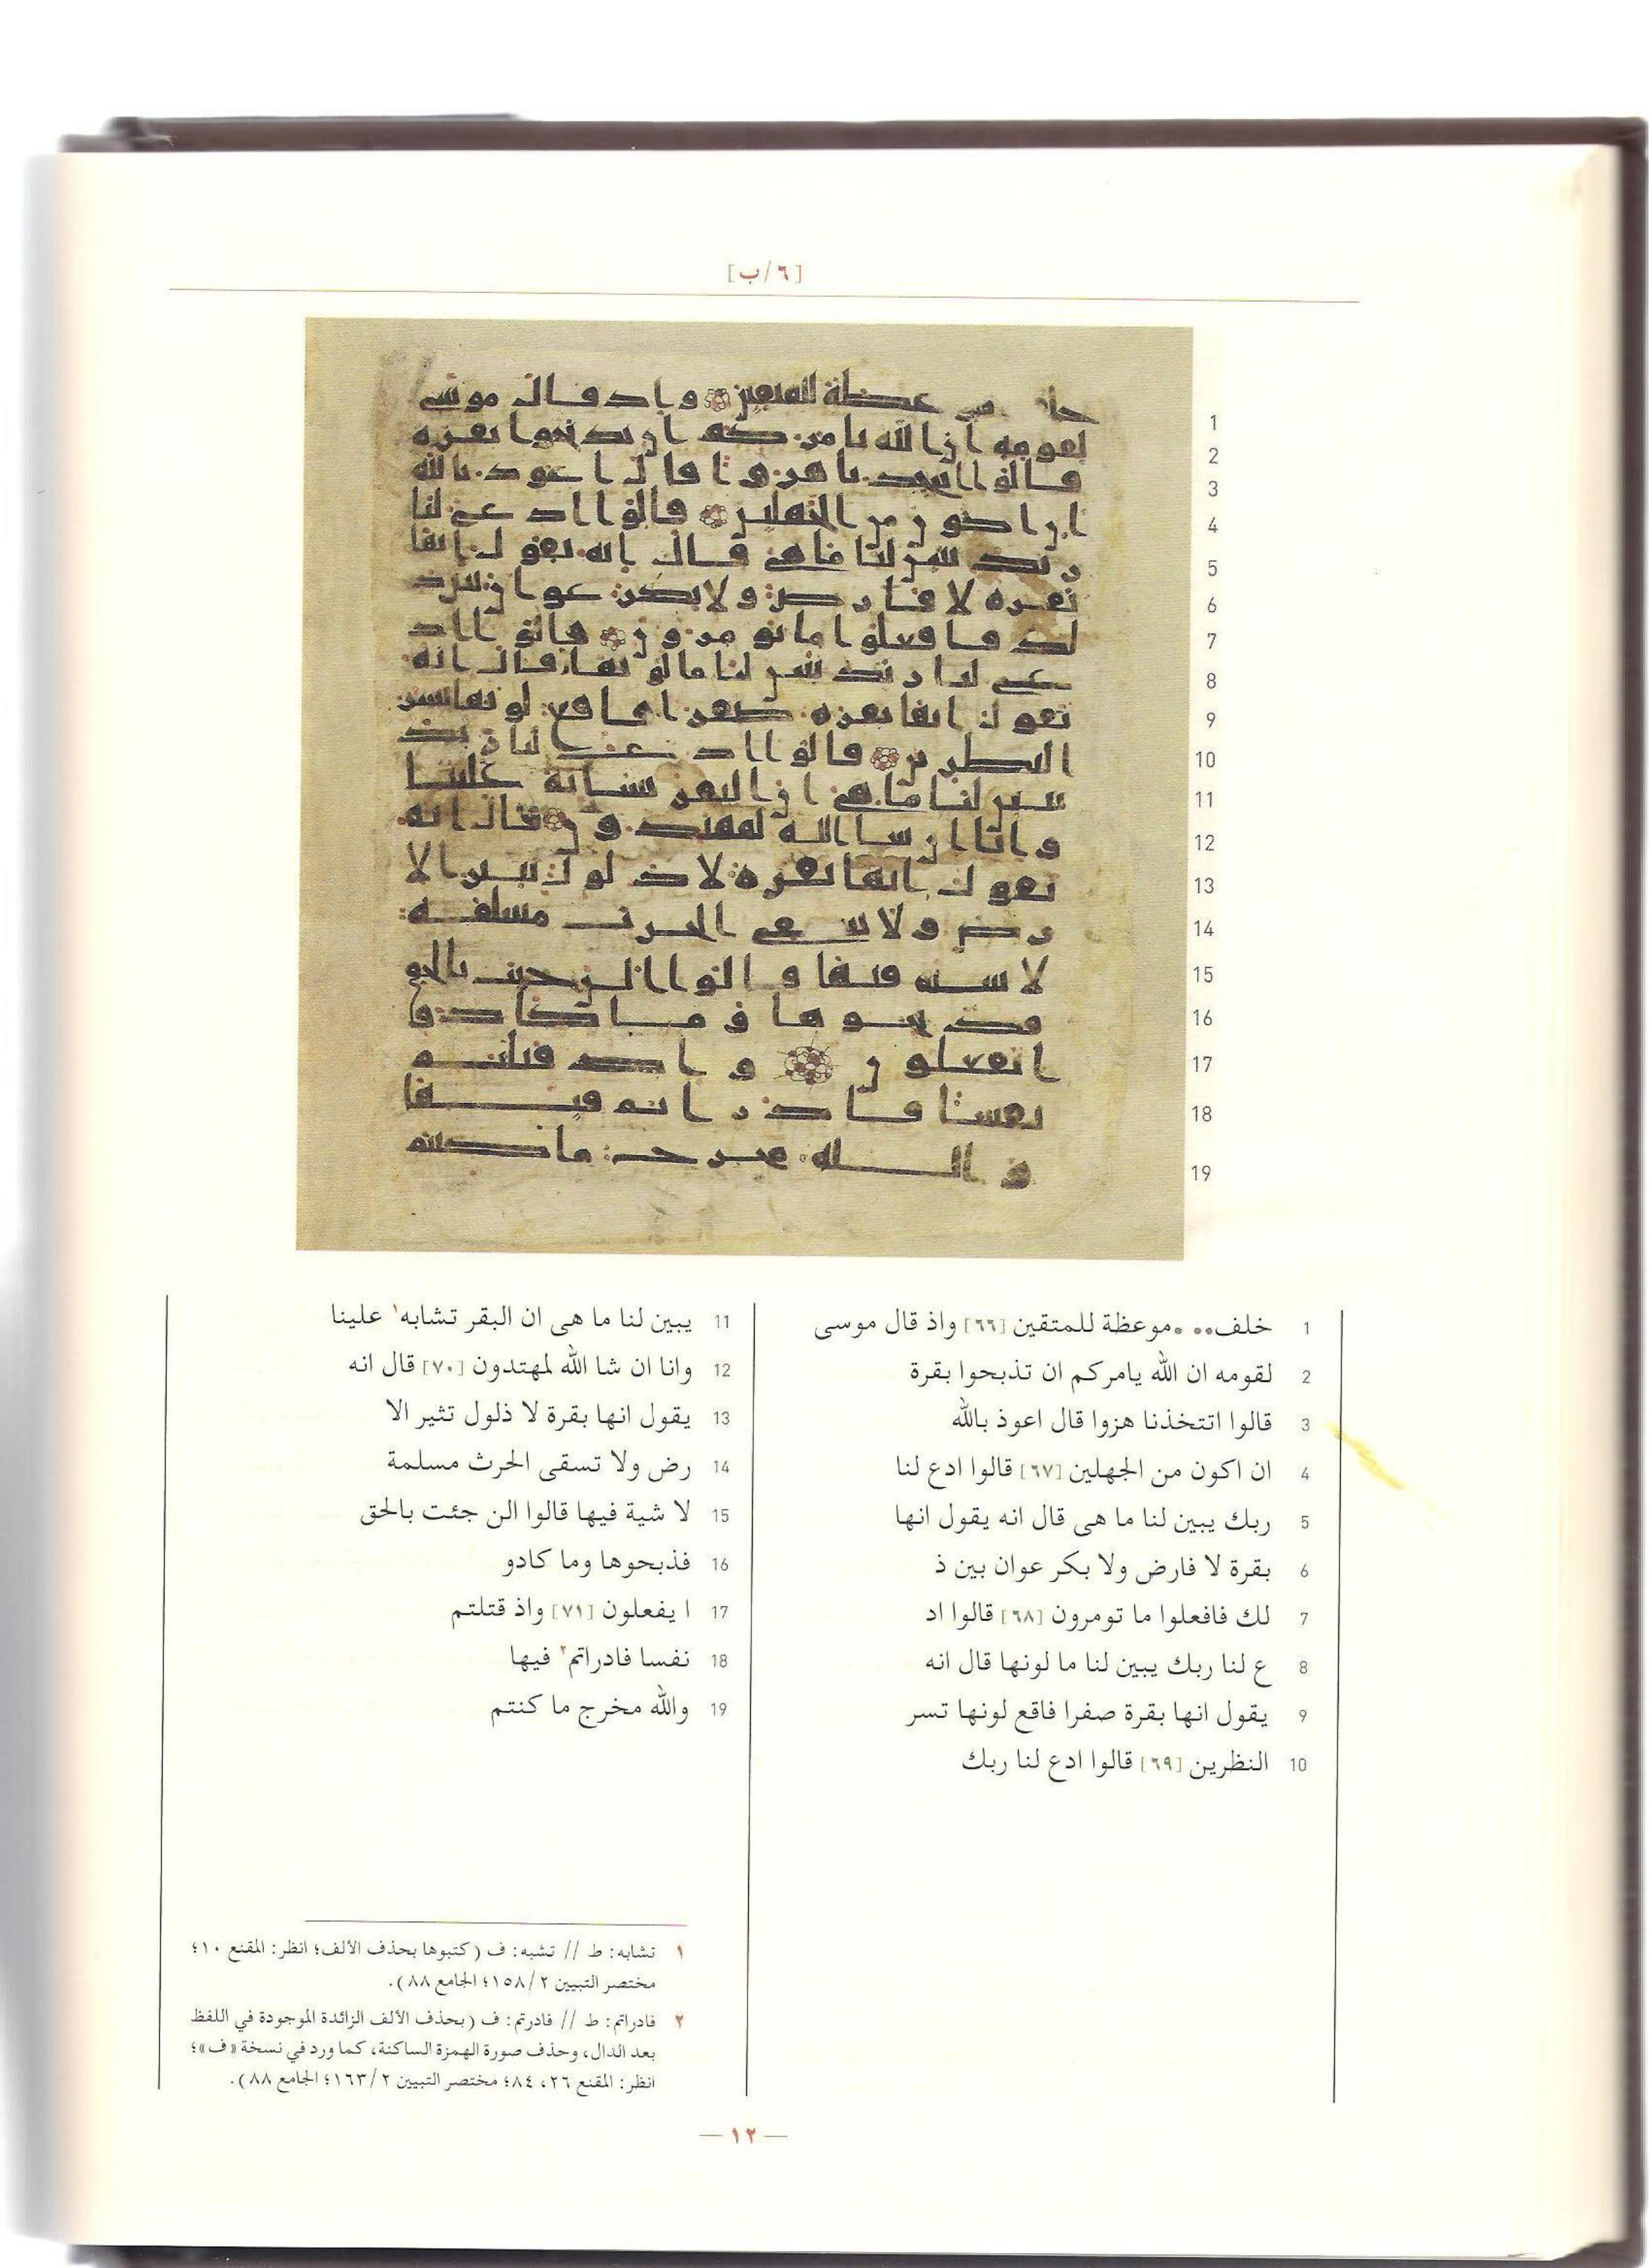 [٦/ب]
1 خلف... .موعظة للمتقين [٦٦] واذ قال موسى
2 لقومه ان الله يامركم ان تذبحوا بقرة
3 قالوا اتتخذنا هزوا قال اعوذ بالله
4 ان اكون من الجهلين [٦٧] قالوا ادع لنا
5 ربك يبين لنا ما هى قال انه يقول انها
6 بقرة لا فارض ولا بكر عوان بين ذ
7 لك فافعلوا ما تومرون [٦٨] قالوا اد
8 ع لنا ربك يبين لنا ما لونها قال انه
9 يقول انها بقرة صفرا فاقع لونها تسر
10 النظرين [٦٩] قالوا ادع لنا ربك
11 يبين لنا ما هى ان البقر تشابه١ علينا
12 وانا ان شا الله لمهتدون [٧٠] قال انه
13 يقول انها بقرة لا ذلول تثير الا
14 رض ولا تسقى الحرث مسلمة
15 لا شية فيها قالوا الن جئت بالحق
16 فذبحوها وما كادو
17 ا يفعلون [٧١] واذ قتلتم
18 نفسا فادراتم٢ فيها
19 والله مخرج ما كنتم
١ تشابه: ط // تشبه: ف (كتبوها بحذف الألف؛ انظر: المقنع ١٠؛
مختصر التبيين ١٥٨/٢؛ الجامع ٨٨).
٢ فادراتم: ط // فادرتم: ف (بحذف الألف الزائدة الموجودة في اللفظ
بعد الدال، وحذف صورة الهمزة الساكنة، كما ورد في نسخة «ف»؛
انظر: المقنع ٢٦، ٨٤؛ مختصر التبيين ١٦٣/٢؛ الجامع ٨٨).
— ١٢ —